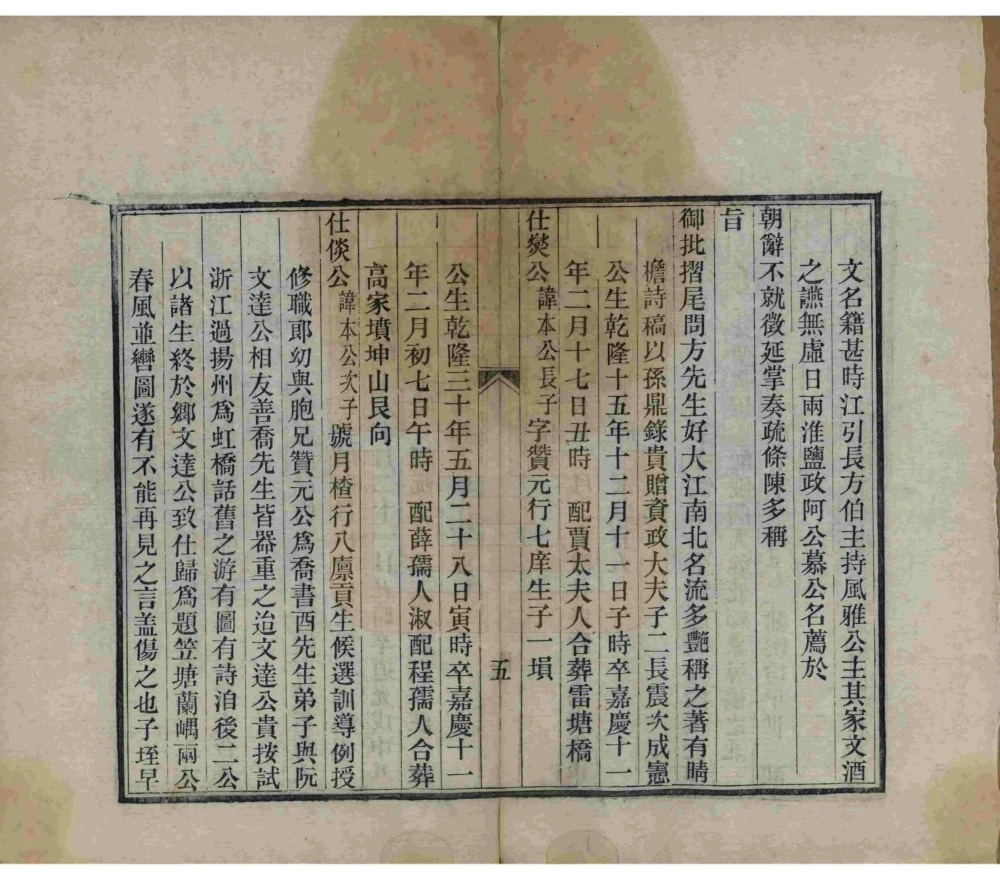 文名籍甚時江引長方伯主持風雅公主其家文酒
之讌無虛日兩淮鹽政阿公慕公名薦於
朝辭不就徵延掌奏疏條陳多稱
旨
御批摺尾問方先生好大江南北名流多艷稱之著有晴
檐詩稿以孫鼎錄貴贈資政大夫子二長震次成憲
公生乾隆十五年十二月十一日子時卒嘉慶十一
年二月十七日丑時　配賈太夫人合葬雷塘橋
仕爕公諱本公長子字贊元行七庠生子一塤
五
公生乾隆三十年五月二十八日寅時卒嘉慶十一
年二月初七日午時　配薛孺人淑配程孺人合葬
高家墳坤山艮向
仕倓公諱本公次子號月楂行八廪貢生候選訓導例授
修職郎幼與胞兄贊元公爲喬書酉先生弟子與阮
文達公相友善喬先生皆器重之迨文達公貴按試
浙江過揚州爲虹橋話舊之游有圖有詩洎後二公
以諸生終於鄉文達公致仕歸爲題笠塘蘭嵎兩公
春風並轡圖遂有不能再見之言盖傷之也子垤早